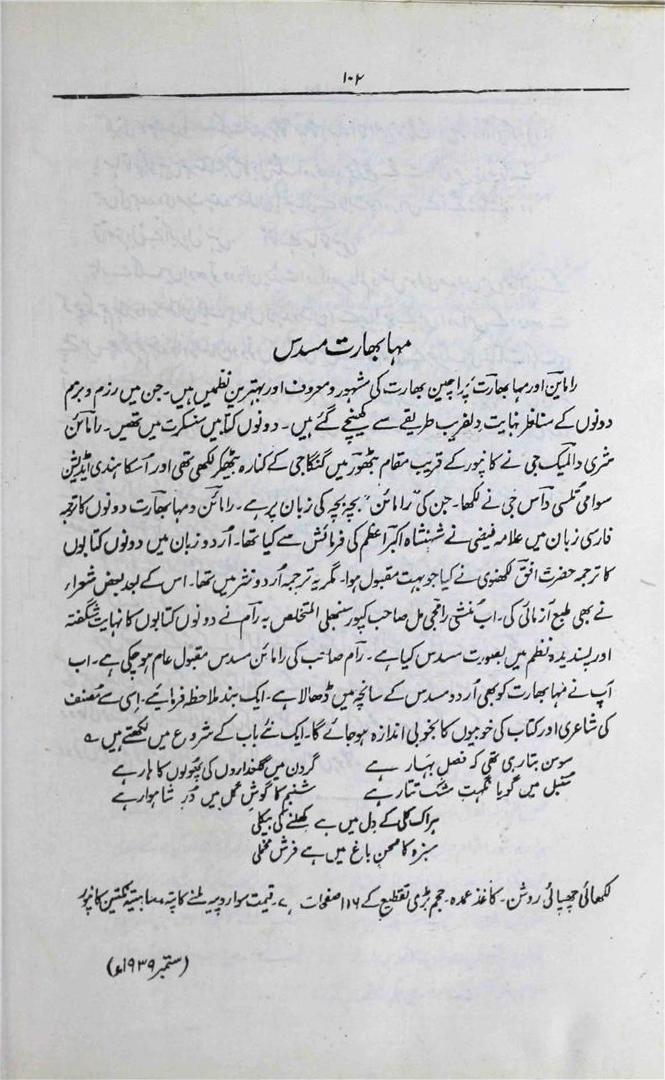 ۱۰۲
مہا بھارت مسدس
رامائن اور مہا بھارت پراچین بھارت کی مشہور و معروف اور بہترین نظمیں ہیں۔ جن میں رزم و بزم
دونوں کے مناظر نہایت دلفریب طریقے سے کھینچے گئے ہیں۔ دونوں کتابیں سنسکرت میں تھیں۔ رامائن
شری والمیک جی نے کانپور کے قریب مقام بٹھور میں گنگا جی کے کنارہ بیٹھکر لکھی تھی اور اسکا ہندی ایڈیشن
سوامی تلسی داس جی نے لکھا۔ جن کی "رامائن" بچہ بچہ کی زبان پر ہے۔ رامائن و مہا بھارت دونوں کا ترجمہ
فارسی زبان میں علامہ فیضی نے شہنشاہ اکبر اعظم کی فرمائش سے کیا تھا۔ اُردو زبان میں دونوں کتابوں
کا ترجمہ حضرت افق لکھنوی نے کیا جو بہت مقبول ہوا۔ مگر یہ ترجمہ اُردو نثر میں تھا۔ اس کے بعد بعض شعراء
نے بھی طبع آزمائی کی۔ اب منشی رامجی مل صاحب کپور سنبھلی المتخلص بہ رام نے دونوں کتابوں کا نہایت شگفتہ
اور پسندیدہ نظم میں بصورت مسدس کیا ہے۔ رام صاحب کی رامائن مسدس مقبول عام ہو چکی ہے۔ اب
آپ نے مہا بھارت کو بھی اُردو مسدس کے سانچہ میں ڈھالا ہے۔ ایک بند ملاحظہ فرمائیے۔ اِسی سے مصنف
کی شاعری اور کتاب کی خوبیوں کا بخوبی اندازہ ہو جائے گا۔ ایک نئے باب کے شروع میں لکھتے ہیں ؎
سوسن بتا رہی تھی کہ فصلِ بہار ہے گردن میں گلعذاروں کی پھولوں کا ہار ہے
سنبل میں گویا نگہتِ مشک تتار ہے شبنم کا گوشِ گل میں دُرِ شاہوار ہے
ہر اک کلی کے دل میں ہے کھلنے کی بیکلی
سبزہ کا صحنِ باغ میں ہے فرش مخملی
لکھائی چھپائی روشن۔ کاغذ عمدہ۔ حجم بڑی تقطیع کے ۱۱۶ صفحات ہے۔ قیمت سوا روپیہ ملنے کا پتہ کانپور
(ستمبر ۱۹۳۹ء)